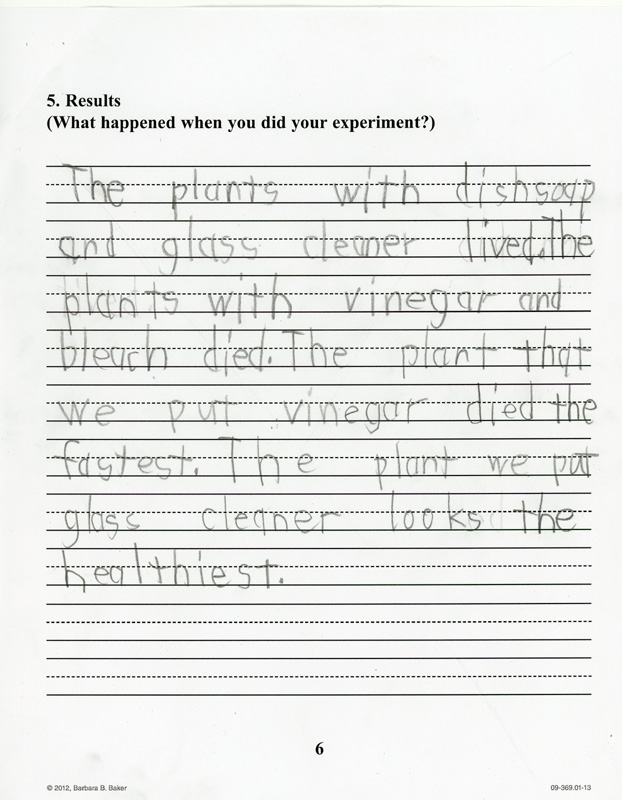 5. Results
(What happened when you did your experiment?)
The plants with dishsoap
and glass cleaner lived. The
plants with vinegar and
bleach died. The plant that
we put vinegar died the
fastest. The plant we put
glass cleaner looks the
healthiest.
6
© 2012, Barbara B. Baker
09-369.01-13